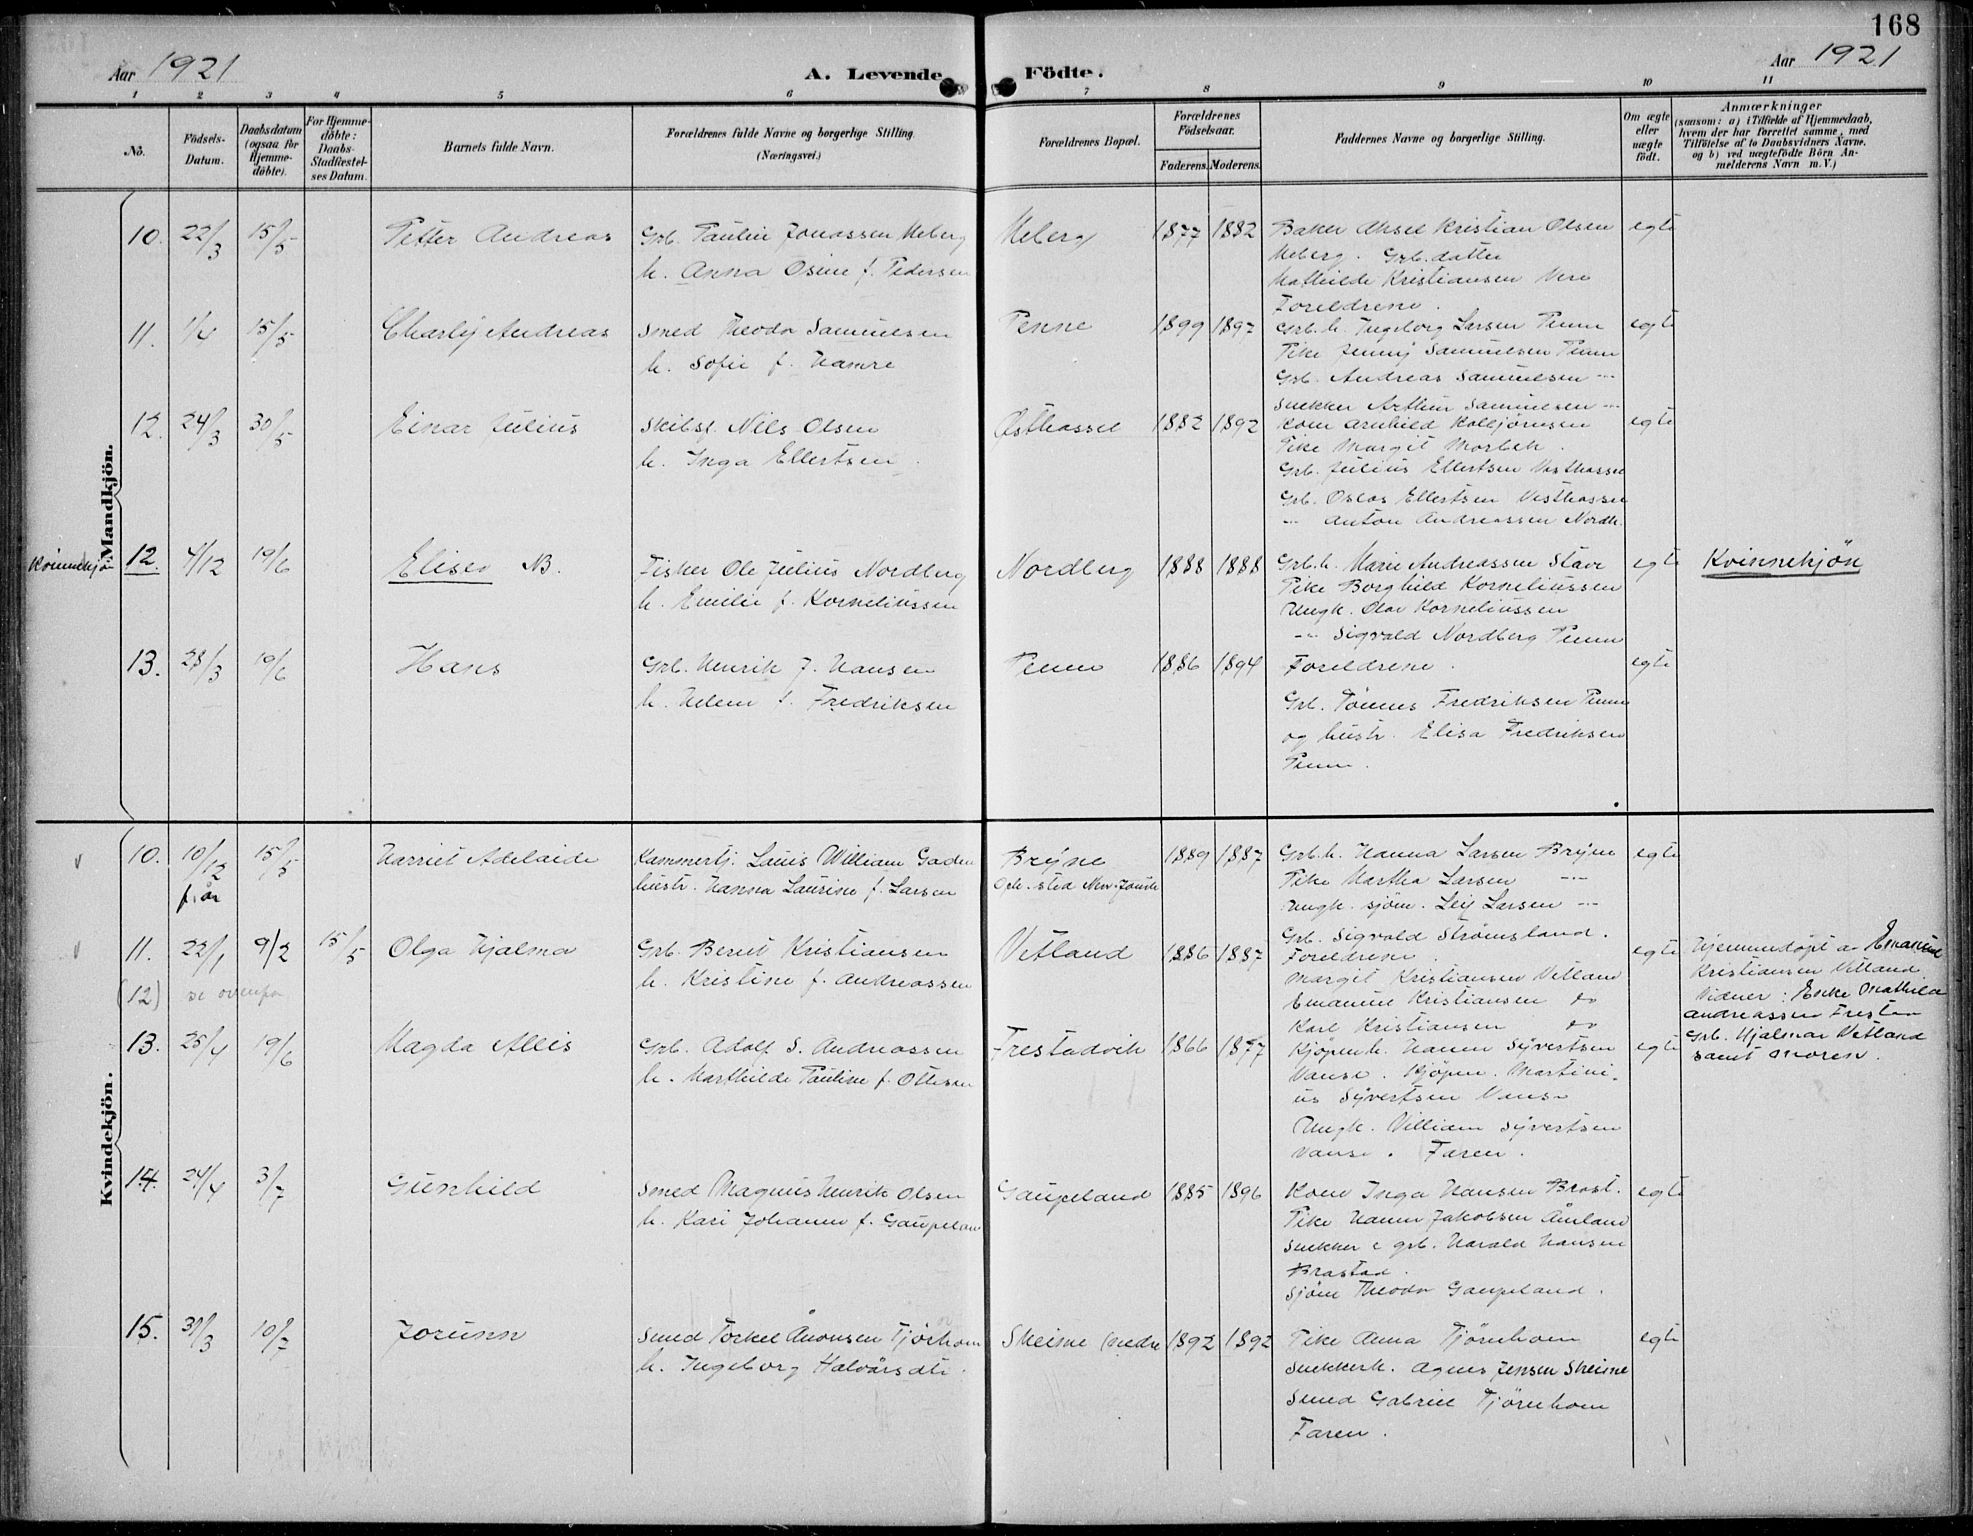 168
Aar 1921
A. Levende Födte.
Aar 1921
1 2 3 4 5 6 7 8 9 10 11
No.
Födsels-Datum.
Daabsdatum (ogsaa for Hjemme-döbte).
For Hjemme-döbte: Daabs-Stadfæstel-ses Datum.
Barnets fulde Navn.
Forældrenes fulde Navne og borgerlige Stilling.
(Næringsvei.)
Forældrenes Bopæl.
Forældrenes Födselsaar.
Faderens. Moderens.
Faddernes Navne og borgerlige Stilling.
Om ægte eller uægte födt.
Anmærkninger
(saasom: a) i Tilfælde af Hjemmedaab,
hvem der har forrettet samme, med
Tilföielse af to Daabsvidners Navne,
og b) ved uægtefödte Börn An-
melderens Navn m. V.)
Mandkjön.
10. 22/3 15/5 Petter Andreas Grb. Paulin Jonassen Meberg Meberg 1877 1882 Baker Aksel Kristian Olsen egte
h. Anna Osine f. Pedersen Meberg. Grb.datter
Mathilde Kristiansen Vere
Foreldrene.
11. 1/4 15/5 Charly Andreas Smed Theodor Samuelsen Penne 1899 1897 Grb.h. Ingeborg Larsen Penne egte
h. Sofie f. Hamre Pike Jenny Samuelsen Penne
Grb. Andreas Samuelsen -"-
Snekker Arthur Samuelsen -"-
12. 24/3 30/5 Einar Julius Skibsf. Nils Olsen Østhassel 1882 1892 Kone Arnhild Kolbjørnsen egte
h. Inga Ellertsen. Pike Margit Morbek.
Grb. Julius Ellertsen Vesthassel
Grb. Oskar Ellertsen Vesthassel
-"- Anton Andreassen Nordh.
Kvinnekjøn 12. 4/12 19/6 Elisev NB. Fisker Ole Julius Nordberg Nordberg 1888 1888 Grb.h. Marie Andreassen Stave egte Kvinnekjøn
h. Emilie f. Korneliussen Pike Borghild Korneliussen
Ungk. Olav Korneliussen
-"- Sigvald Nordberg Penne
13. 28/3 19/6 Hans Grb. Henrik J. Hansen Penne 1886 1894 Foreldrene. egte
h. Helene f. Fredriksen Grb. Tønnes Fredriksen Penne
og hustr. Elisa Fredriksen
Penne.
Kvindekjön.
10. 10/12 15/5 Harriet Adelaide Kammertj. Louis William Gaden Brÿne 1889 1887 Grb.h. Hanna Larsen Brÿne egte
f. år hustr. Hanna Laurine f. Larsen Oph. sted New-Jork Pike Martha Larsen -"-
Ungk. sjøm. Leif Larsen -"-
Grb. Sigvald Strømsland.
11. 22/1 9/2 15/5 Olga Hjalma Grb. Bernt Kristiansen Vetland 1886 1887 Foreldrene. egte Hjemmedøpt av Emanuel
h. Kristine f. Andreassen Margit Kristiansen Vetland Kristiansen Vetland
(12) se ovenfor Emanuel Kristiansen do Vidner: Enke Mathilde
Karl Kristiansen do Andreassen Frestad
Grb. Hjalmar Vetland
samt moren.
13. 25/4 19/6 Magda Allis Grb. Adolf S. Andreassen Frestadvik 1866 1877 Kjøpm.h. Hanne Syvertsen egte
h. Marthilde Pauline f. Ottesen Vanse. Kjøpm. Martini-
us Syvertsen Vanse
Ungk. Villiam Syvertsen
Vanse. Faren.
14. 24/4 3/7 Gunhild Smed Magnus Henrik Olsen Gaupeland 1885 1896 Kone Inga Hansen Brast. egte
h. Kari Johanne f. Gaupeland Pike Hanne Jakobsen Åmland
Snekker & grb. Harald Hansen
Brastad.
Sjøm Theodor Gaupeland.
15. 31/3 10/7 Jorunn Smed Torkel Aanonsen Tjørhom Skeime (nedre 1892 1892 Pike Anna Tjørnhom egte
h. Ingeborg Halvårsdtr. Snekkerh. Agnes Jensen Skeime
Smed Gabriel Tjørnhom
Faren.